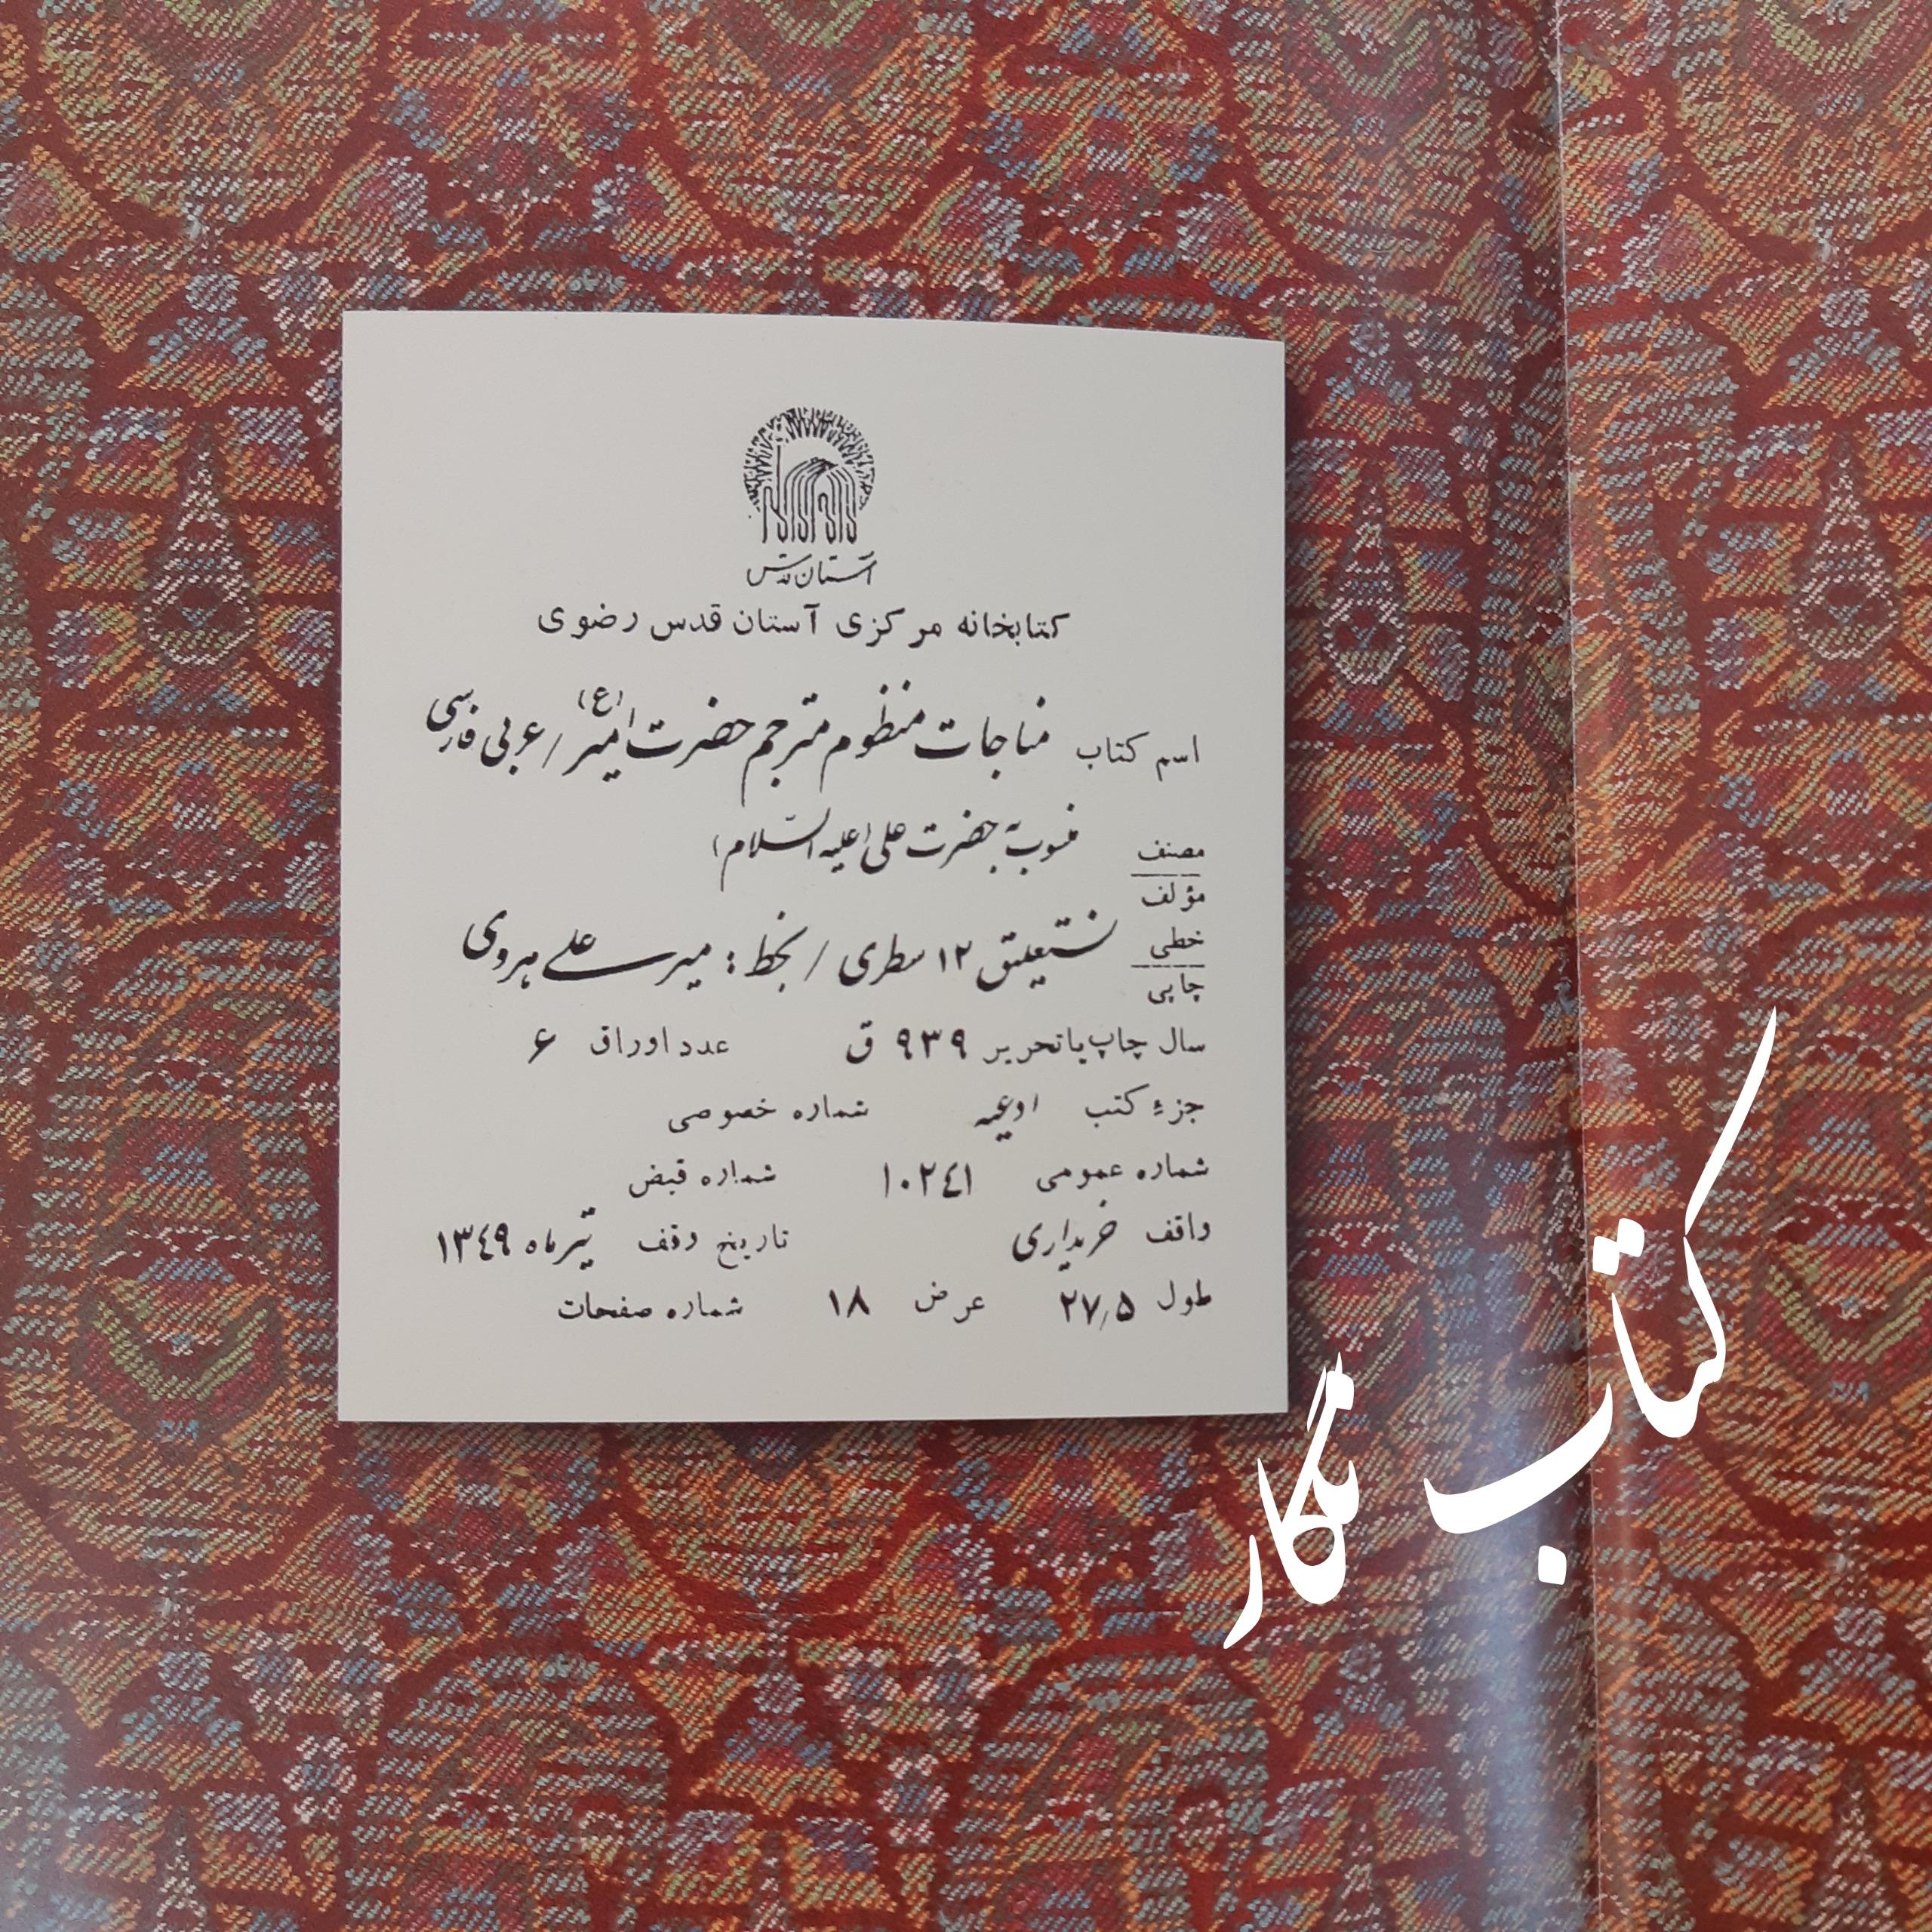 آستان قدس
کتابخانه مرکزی آستان قدس رضوی
اسم کتاب مناجات منظوم مترجم حضرت امیر (ع) / عربی فارسی
مصنف
مؤلف
منسوب به حضرت علی (علیه السّلام)
خطی
چاپی
نستعلیق ۱۲ سطری / بخط : میر علی هروی
سال چاپ یا تحریر ۹۳۹ ق عدد اوراق ۶
جزء کتب ادعیه شماره خصوصی
شماره عمومی ۱۰۲٤۱ شماره قبض
واقف خریداری تاریخ وقف تیر ماه ۱۳٤۹
طول ۲۷٫۵ عرض ۱۸ شماره صفحات
کتاب نگار